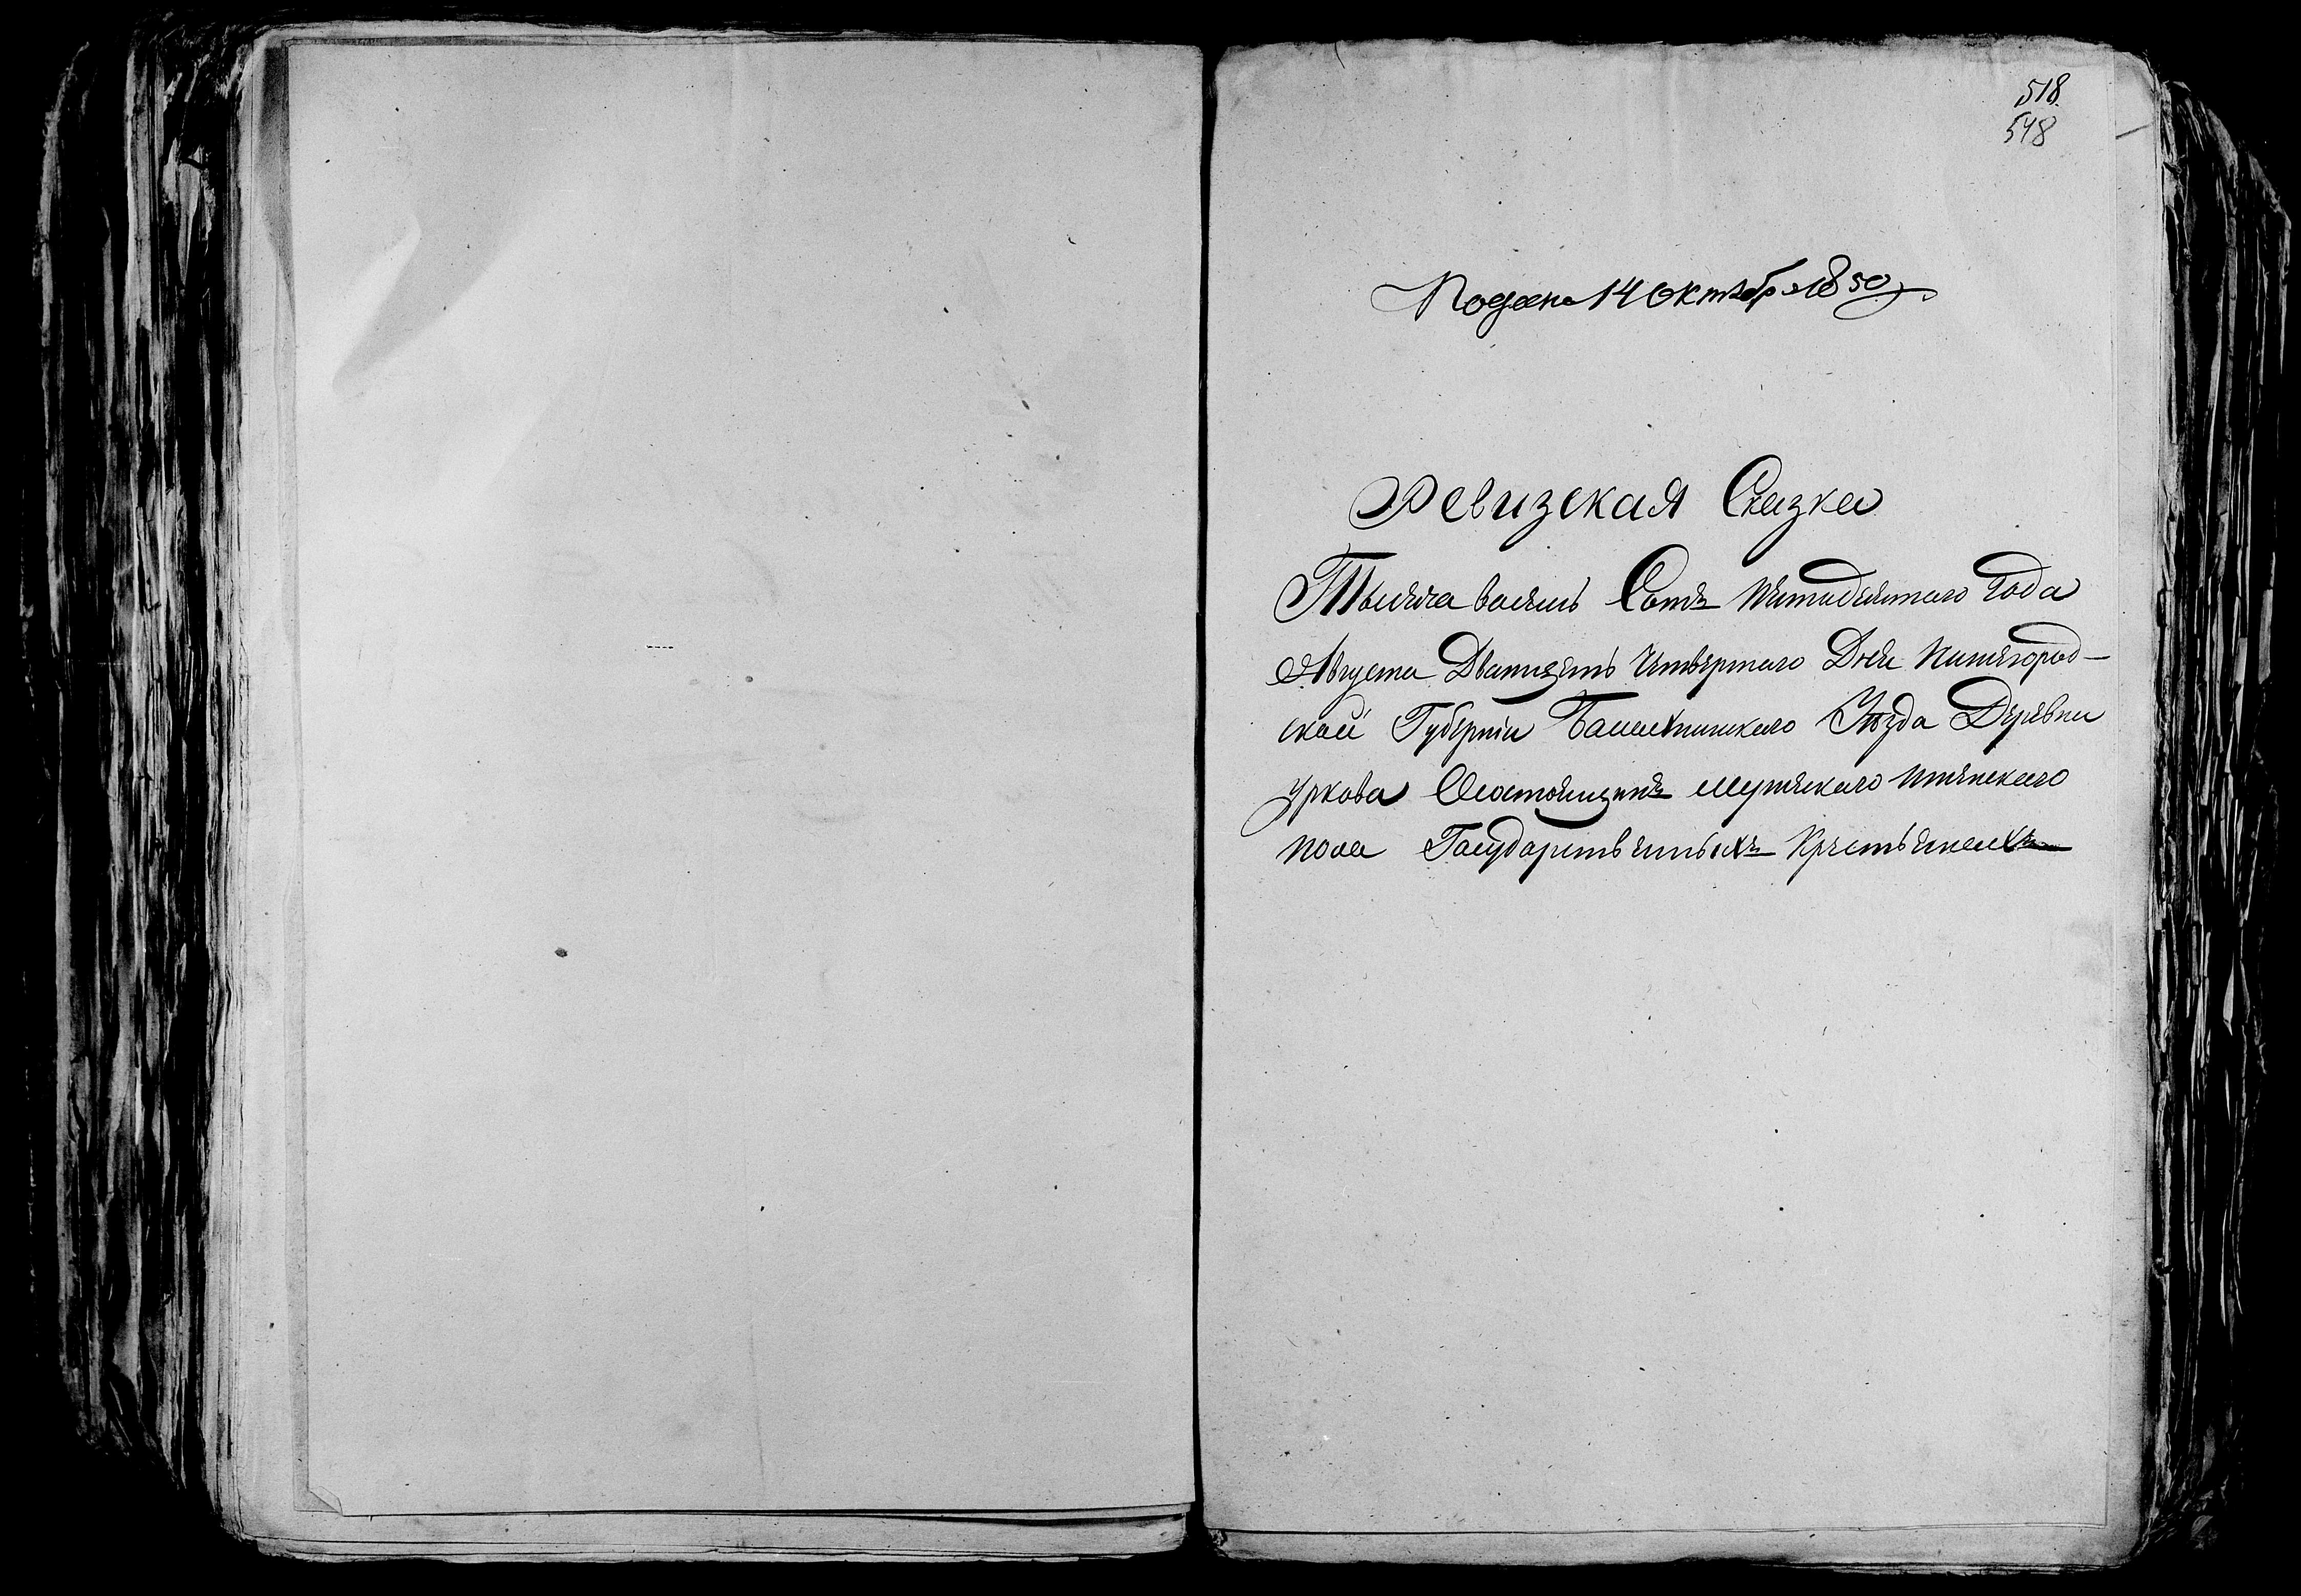 518
548
Подана 14 Октября 1850
Ревизская Сказка
Тысяча восемь Сотъ пятидесятаго Года
Августа Дватцеть Четвертаго Дня Нижегород-
ской Губерніи Балахнинскаго Уѣзда Деревни
Уркова Осостоящихъ мужескаго женскаго
пола Государственныхъ Крестьянахъ